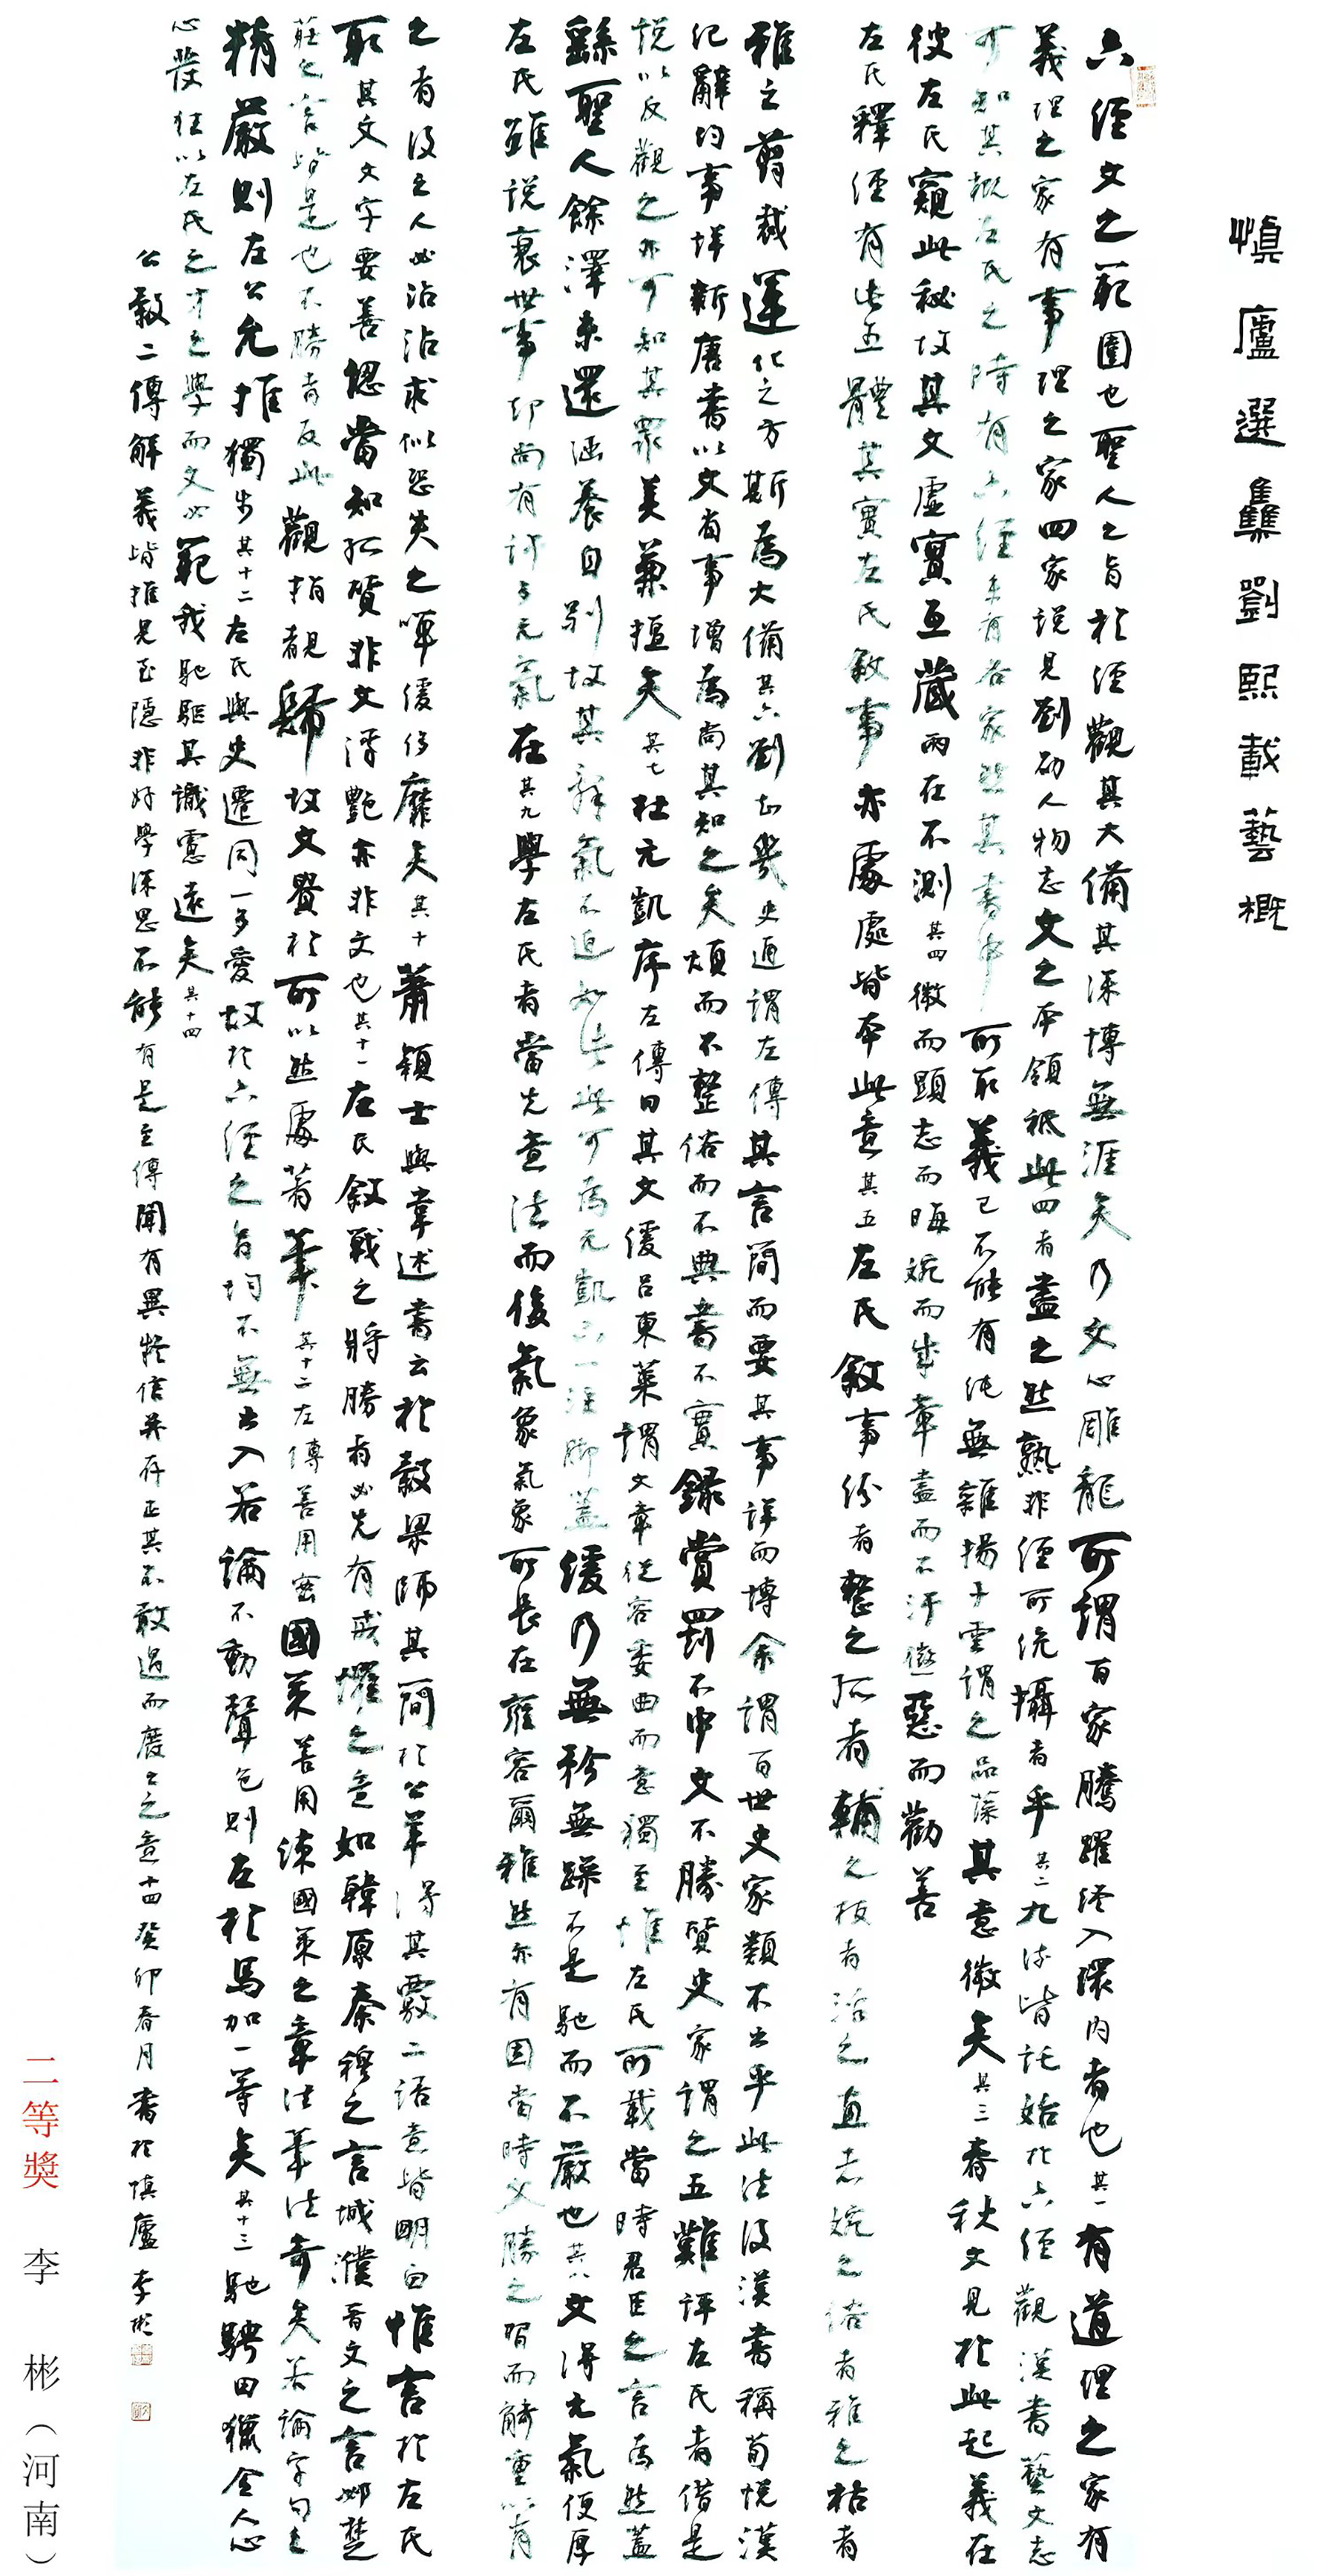 慎廬選集劉熙載藝概
六經文之範圍也聖人之旨於經觀其大備其深博無涯矣乃文心雕龍可謂百家騰躍終入環內者也其一有道理之家有
義理之家有事理之家有情理之家四家說見劉劭人物志文之本領祗此四者盡之然孰非經所統攝者乎其二九流皆託始於六經觀漢書藝文志
可知其概左氏之時有六經未有各家然其書中所取義已不能有純無雜揚子雲謂之品藻其意微矣其三春秋文見於此起義在
彼左氏窺此秘故其文虛實互藏兩在不測其四微而顯志而晦婉而成章盡而不汙懲惡而勸善
左氏釋經有此五體其實左氏敘事亦處處皆本此意其五左氏敘事紛者整之孤者輔之板者活之直者婉之俗者雅之枯者
腴之剪裁運化之方斯為大備其六劉知幾史通謂左傳其言簡而要其事詳而博余謂百世史家類不出乎此法後漢書稱荀悅漢
紀辭約事詳新唐書以文省事增為尚其知之矣煩而不整俗而不典書不實錄賞罰不中文不勝質史家謂之五難評左氏者借是
說以反觀之亦可知其眾美兼擅矣其七杜元凱序左傳曰其文緩呂東萊謂文章從容委曲而意獨至惟左氏所載當時君臣之言為然蓋
繇聖人餘澤未還涵養自別故其辭氣不迫如此此可為元凱下一注腳蓋緩乃無矜無躁不是馳而不嚴也其八文得元氣便厚
左氏雖說衰世事卻尚有許多元氣在其九學左氏者當先意法而後氣象氣象所長在雍容爾雅然亦有因當時文勝之習而觭重以肖
之者後之人必沾沾求似恐失之嘽緩侈靡矣其十蕭穎士與韋述書云於穀梁師其簡於公羊得其覈二語意皆明白惟言於左氏
取其文文字要善認當知孤質非文浮艷亦非文也其十一左氏敘戰之將勝者必先有戒懼之意如韓原秦穆之言城濮晉文之言邲楚
莊之言皆是也不勝者反此觀指睹歸故文貴於所以然處著筆其十二左傳善用密國策善用疏國策之章法筆法奇矣若論字句之
精嚴則左公允推獨步其十二左氏與史遷同一多愛故於六經之旨均不無出入若論不動聲色則左於馬加一等矣其十三馳騁田獵令人心
心發狂以左氏之才之學而文必範我馳驅其識慮遠矣其十四
公穀二傳解義皆推見至隱非好學深思不能有是至傳聞有異疑信并存正其不敢過而廢之之意十四癸卯春月書於慎廬李彬
二等獎 李 彬（河南）